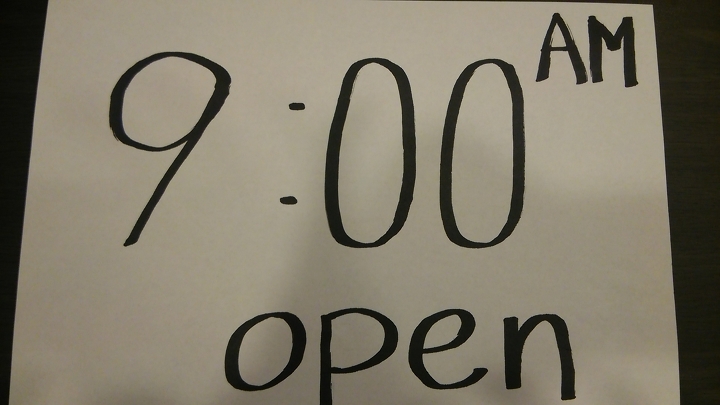 9:00 AM
open